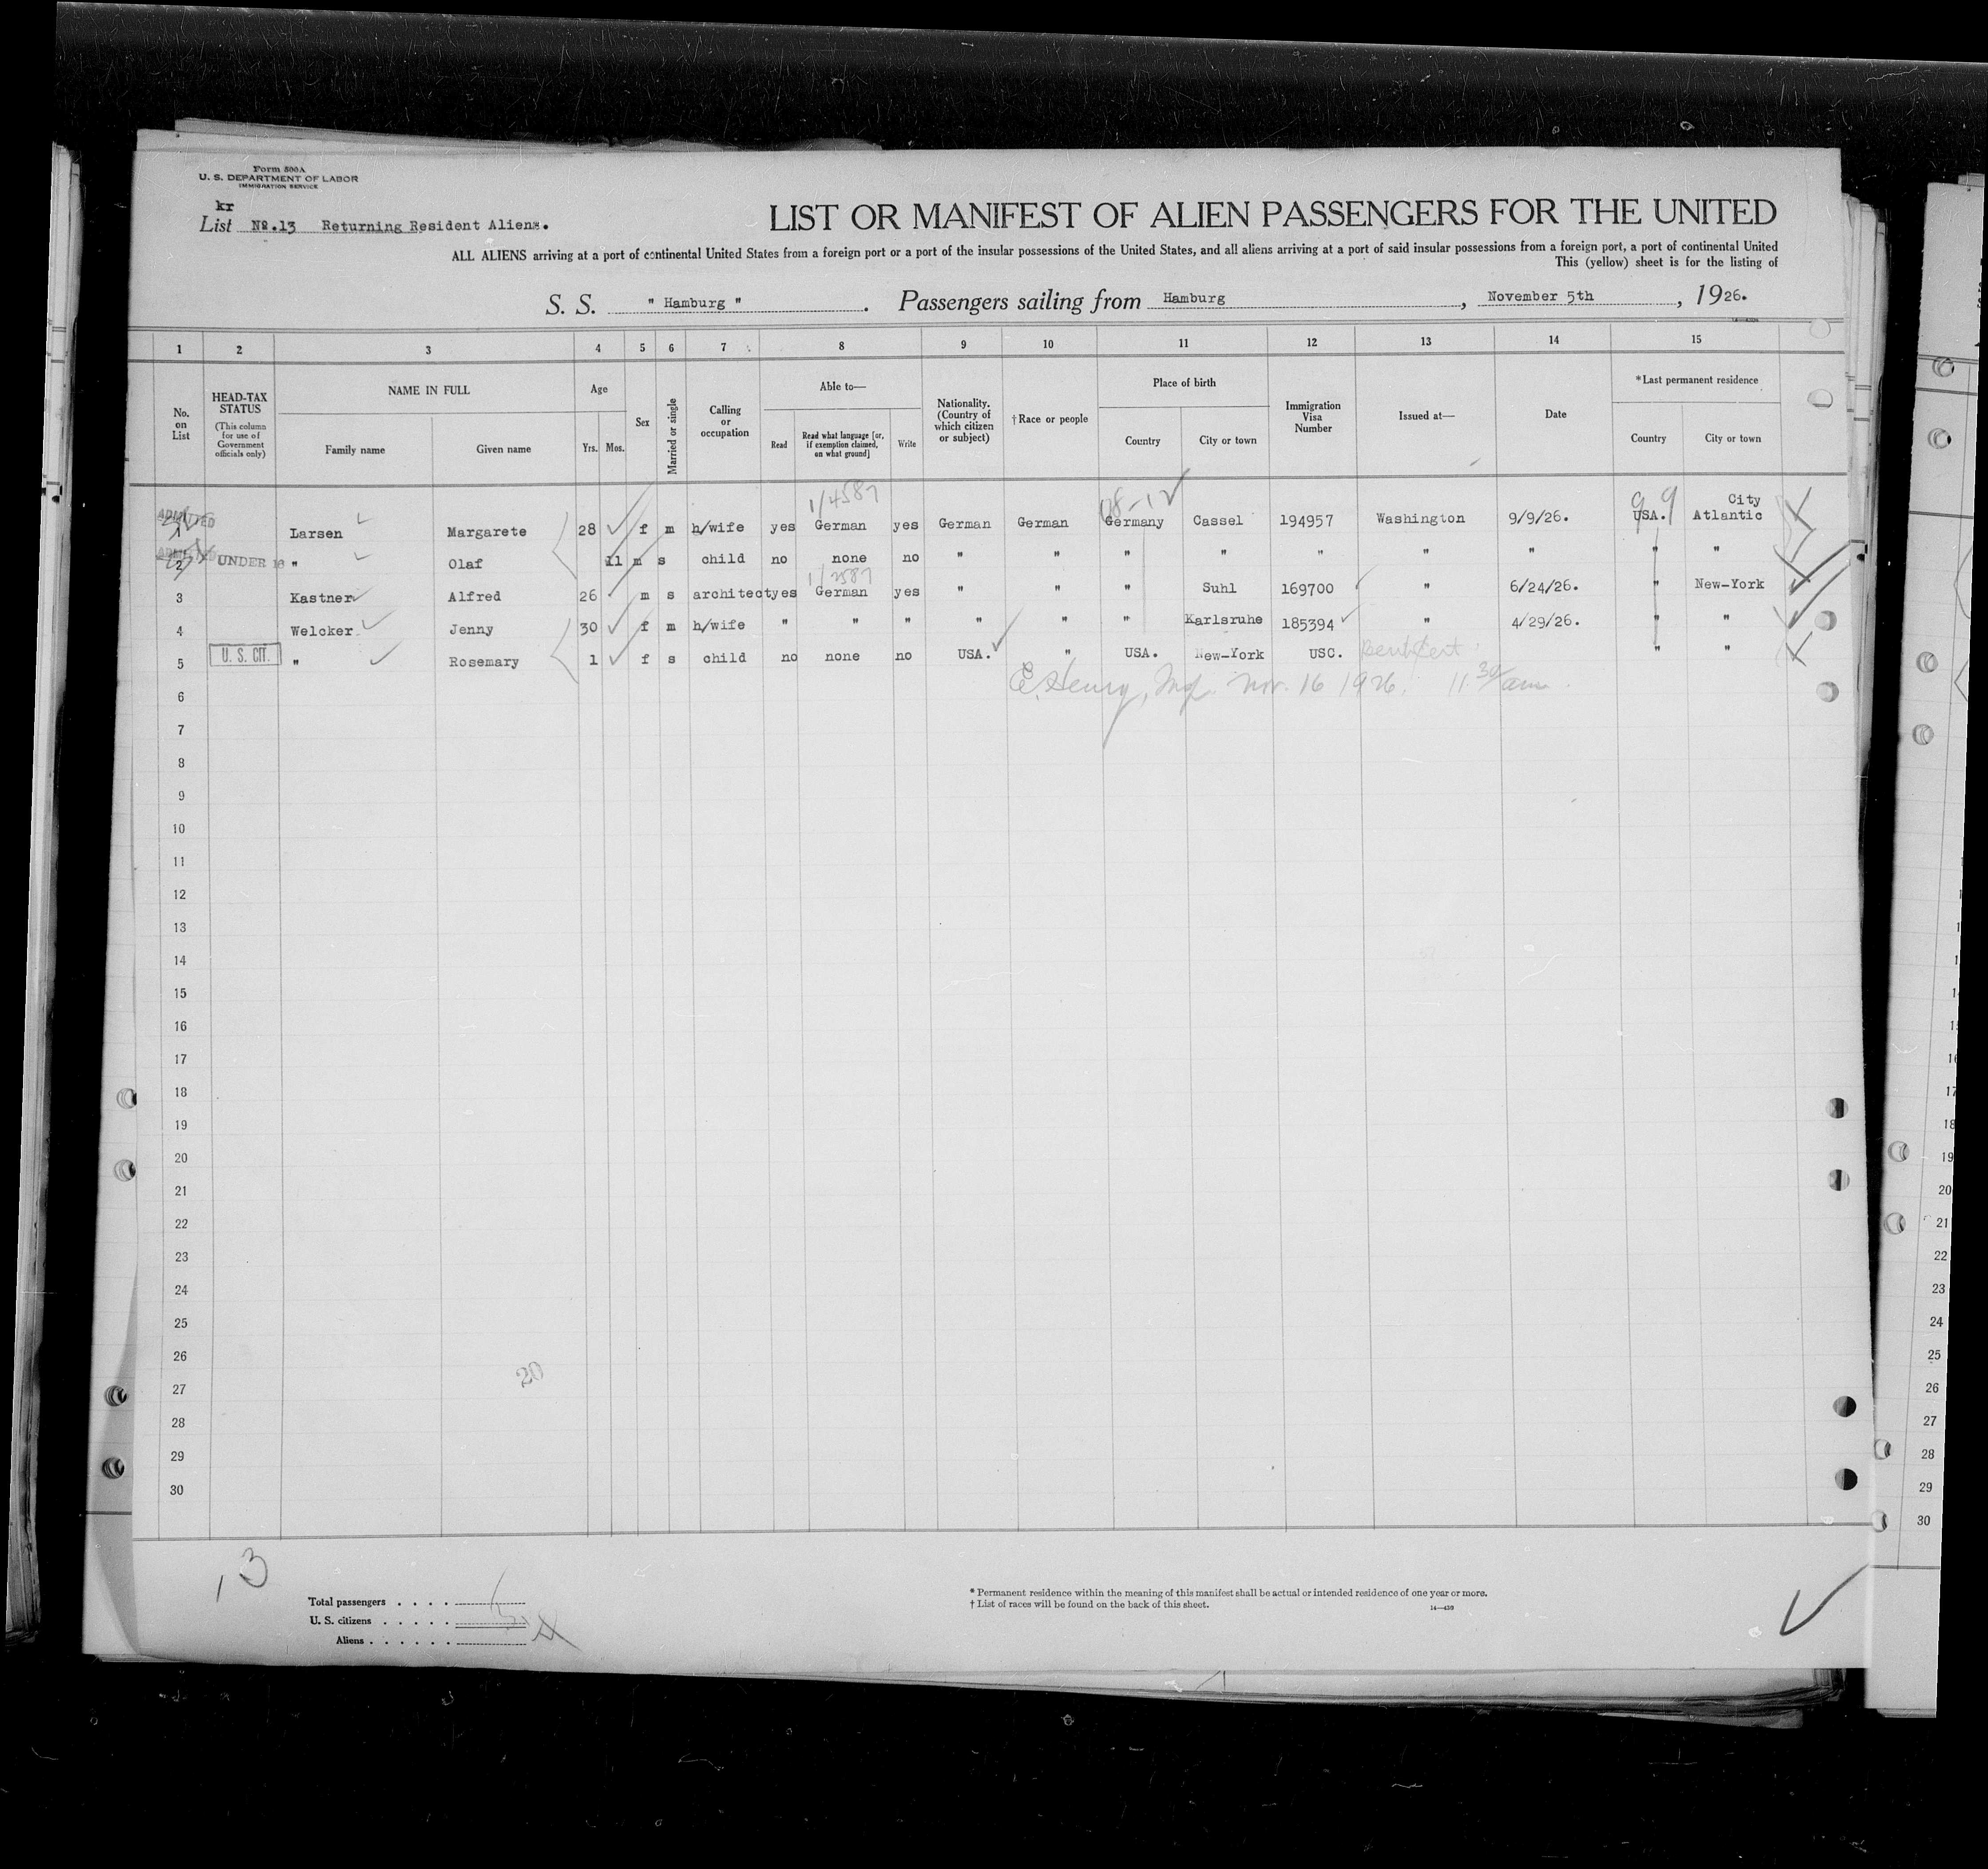 Form 500A
U. S. DEPARTMENT OF LABOR
IMMIGRATION SERVICE
kr
List No.13 Returning Resident Aliens.
LIST OR MANIFEST OF ALIEN PASSENGERS FOR THE UNITED
ALL ALIENS arriving at a port of continental United States from a foreign port or a port of the insular possessions of the United States, and all aliens arriving at a port of said insular possessions from a foreign port, a port of continental United
This (yellow) sheet is for the listing of
S. S. " Hamburg ". Passengers sailing from Hamburg, November 5th, 1926.
1 2 3 4 5 6 7 8 9 10 11 12 13 14 15
No. on List
HEAD-TAX STATUS (This column for use of Government officials only)
NAME IN FULL Family name Given name
Age Yrs. Mos.
Sex
Married or single
Calling or occupation
Able to— Read Read what language [or, if exemption claimed, on what ground] Write
Nationality. (Country of which citizen or subject)
†Race or people
Place of birth Country City or town
Immigration Visa Number
Issued at—
Date
*Last permanent residence Country City or town
1/4587 08-12 99 City
ADMITTED 1 Larsen Margarete 28 f m h/wife yes German yes German German Germany Cassel 194957 Washington 9/9/26. USA. Atlantic
ADMITTED 2 UNDER 16 " Olaf 11 m s child no none no " " " " " " " " "
1/2587
3 Kastner Alfred 26 m s architect yes German yes " " " Suhl 169700 " 6/24/26. " New-York
4 Welcker Jenny 30 f m h/wife " " " " " " Karlsruhe 185394 " 4/29/26. " "
5 U. S. CIT. " Rosemary 1 f s child no none no USA. " USA. New-York USC. " "
6 E. Henry, Insp. Nov. 16 1926. 11 30/am.
7
8
9
10
11
12
13
14
15
16
17
18
19
20
21
22
23
24
25
26
20
27
28
29
30
13
Total passengers
U. S. citizens
Aliens
* Permanent residence within the meaning of this manifest shall be actual or intended residence of one year or more.
† List of races will be found on the back of this sheet.
14—430
18
19
20
21
22
23
24
25
26
27
28
29
30